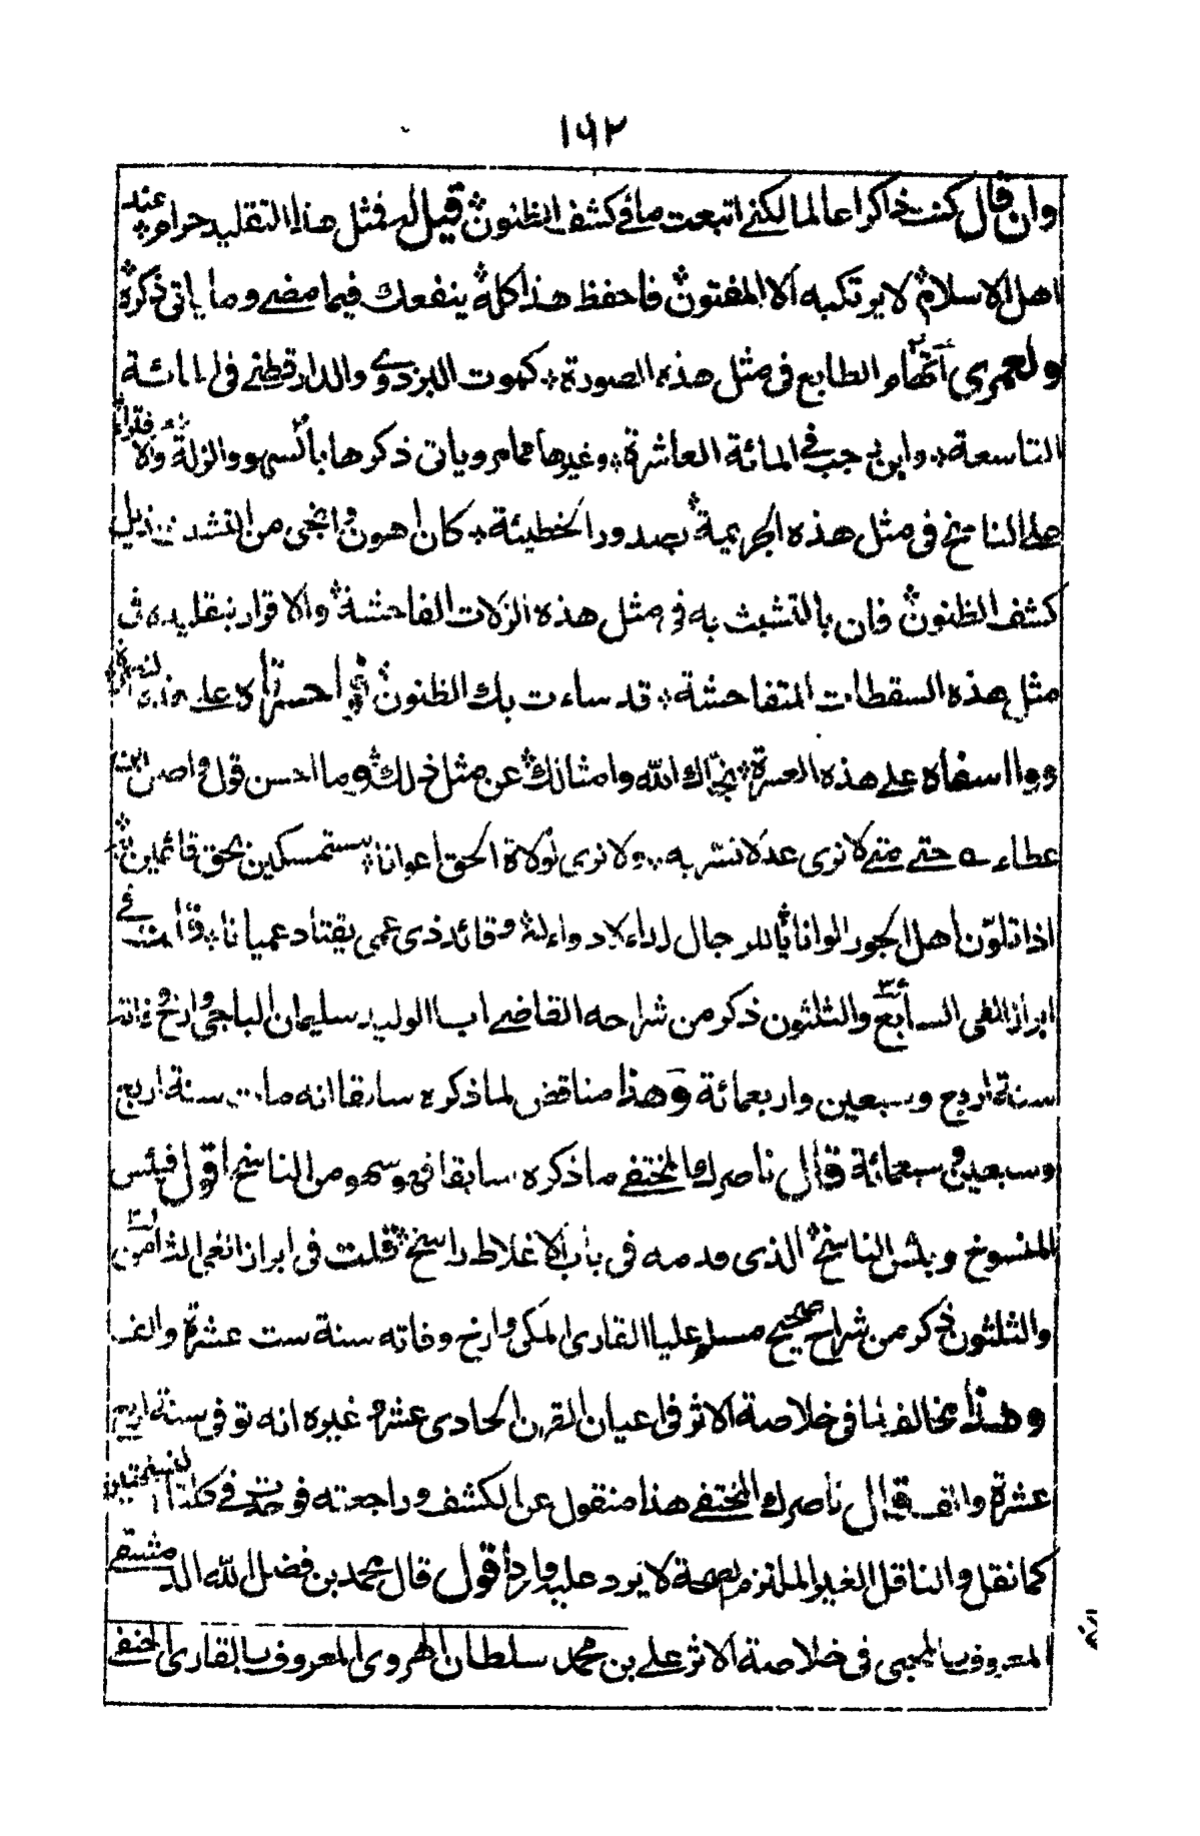 ١٦٢
وان قال كنت ذاكرا عالما لكنے اتبعت ما فے كشف الظنون قيل له فمثل هذا التقليد حرام عند
اهل الاسلام لا يرتكبه الا المفتون فاحفظ هذا كله ينفعك فيما مضے وما ياتی ذكره
ولعمری اتهام الطابع فی مثل هذه الصورة كموت البزدوے والدارقطنے فی المائة
التاسعة وابن رجب فے المائة العاشرة وغيرها مما مر وياتی ذكرها بالسهو والزلة والافتراء
علے الناسخ فی مثل هذه الجريمة بصدور الخطيئة كان اهون وانجی من التشبث بذيل
كشف الظنون فان بالتشبث به فی مثل هذه الزلات الفاحشة والاقرار بتقليده فی
مثل هذه السقطات المتفاحشة قد ساءت بك الظنون احسرتاه علے هذه
ووا اسفاه علے هذه العسرة نجاك الله وامثالك عن مثل ذلك وما احسن قول واصل بن
عطاء ے حتے متے لا نری عدلا نسر به ولا نری لولاة الحق اعوانا مستمسكين بحق قائمين
اذا تلون اهل الجور الوانا يا للرجال لداء لا دواء له وقائد ذی عمی يقتاد عميانا قلت فے
ابراز الغی السابع والثلثون ذكر من شراحه القاضے ابا الوليد سليمان الباجی وارخ وفاته
سنة اربع وسبعين واربعمائة وهذا مناقض لما ذكره سابقا انه مات سنة اربع
وسبعين وسبعمائة قال ناصرك المختفے ما ذكره سابقا فهو سهو من الناسخ اقول فبئس
المنسوخ وبئس الناسخ الذی قدمه فی باب الاغلاط راسخ قلت فی ابراز الغی الثامن
والثلثون ذكر من شراح صحيح مسلم عليا القاری المكی وارخ وفاته سنة ست عشرة والف
وهذا مخالف لما فی خلاصة الاثر فی اعيان القرن الحادی عشر وغيره انه توفی سنة اربع
عشرة والف قال ناصرك المختفے هذا منقول عن الكشف وراجعته فوجدت فے كلتا النسختين
كما نقل والناقل الغير الملتزم لصحة لا يرد عليه وارد اقول قال محمد بن فضل الله الدمشقے
المعروف بالمحبی فی خلاصة الاثر علے بن محمد سلطان الهروی المعروف بالقاری الحنفے